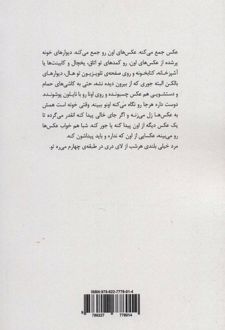 عکس جمع می‌کنه. عکس‌های اون رو جمع می‌کنه. دیوارهای خونه
پرشده از عکس‌های اون. رو کمدهای تو اتاق، یخچال و کابینت‌ها یا
آشپزخانه، کتابخونه و روی صفحه‌ی تلویزیون تو هال، دیوارهای
بالکن البته جوری که از بیرون دیده نشن، حتی به کاشی‌های حمام
و دستشویی هم عکس چسبونده و روی اونا رو با نایلون پوشونده.
دوست داره هرجا رو نگاه می‌کنه اونو ببینه. وقتی خونه است همش
به عکس‌ها زل می‌زنه و اگر جای خالی پیدا کنه انقدر می‌گرده تا
یک عکس دیگه از اون پیدا کنه یا جور کنه. شبا هم خواب عکس‌ها
رو می‌بینه، عکسایی از اون که نداره و باید پیداشون کنه.
مرد خیلی بلندی هرشب از لای دری در طبقه‌ی چهارم می‌ره تو.
ISBN: 978-622-7778-01-4
9 786227 778014